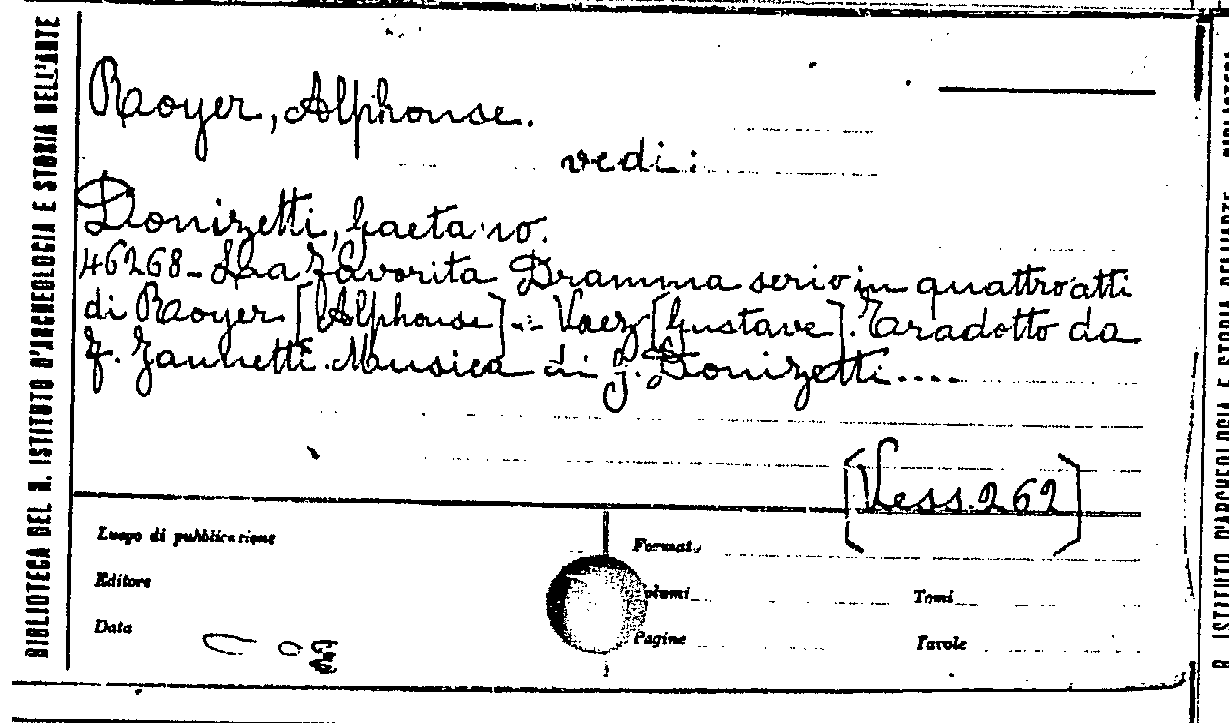 BIBLIOTECA DEL R. ISTITUTO D'ARCHEOLOGIA E STORIA DELL'ARTE
Royer, Alphonse.
vedi:
Donizetti, Gaetano.
46268 - La Favorita Dramma serio in quattro atti
di Royer [Alphonse] - Vaez [Gustave]. Tradotto da
F. Jannetti. Musica di G. Donizetti....
[Vess. 262]
Luogo di pubblicazione
Formato
Editore
Volumi
Tomi
Data
Pagine
Tavole